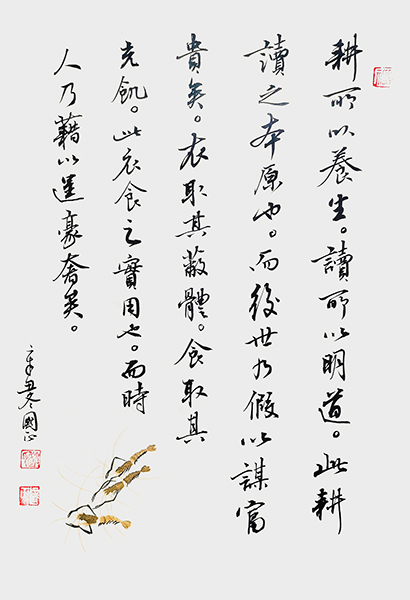 耕所以養生。讀所以明道。此耕
讀之本原也。而後世乃假以謀富
貴矣。衣取其蔽體。食取其
充飢。此衣食之實用也。而時
人乃藉以逞豪奢矣。
辛丑冬國正